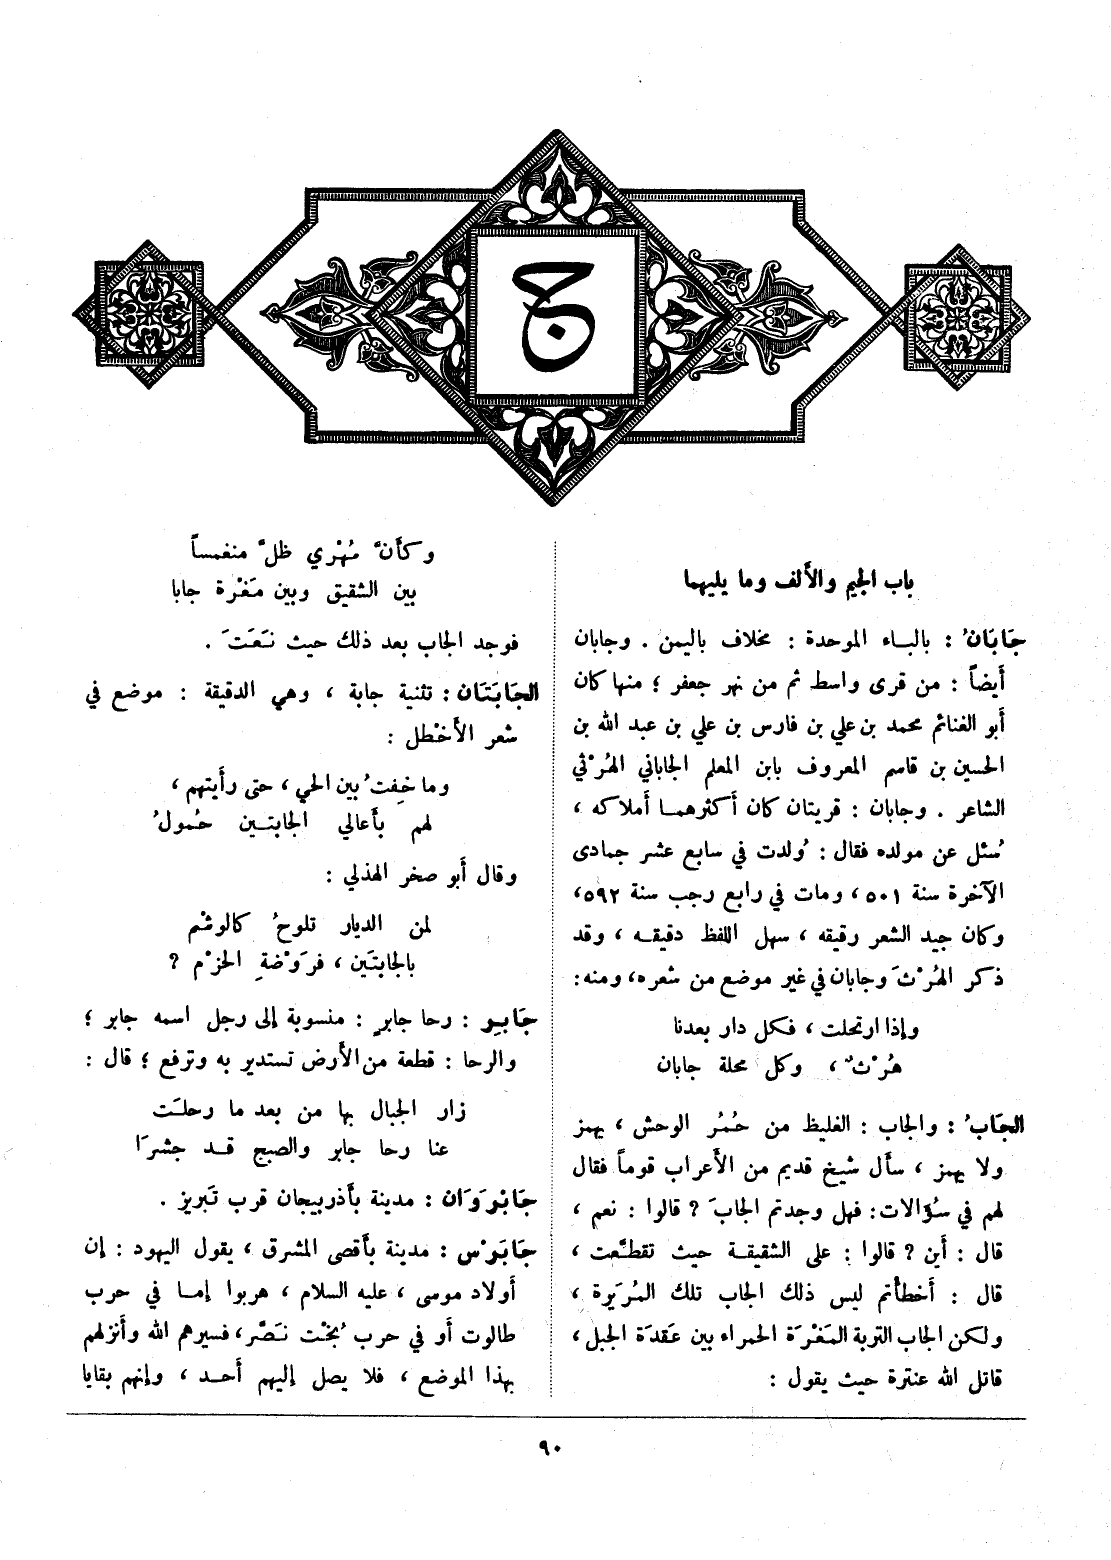 ج
باب الجيم والألف وما يليهما
جَابَانُ : بالباء الموحدة : مخلاف باليمن . وجابان
أيضاً : من قرى واسط ثم من نهر جعفر ؛ منها كان
أبو الغنائم محمد بن علي بن فارس بن علي بن عبد الله بن
الحسين بن قاسم المعروف بابن المعلم الجاباني الهُرْثي
الشاعر . وجابان : قريتان كان أكثرهما أملاكه ،
سُئل عن مولده فقال : وُلدت في سابع عشر جمادى
الآخرة سنة ٥٠١ ، ومات في رابع رجب سنة ٥٩٢،
وكان جيد الشعر رقيقه ، سهل اللفظ دقيقه ، وقد
ذكر الهُرْثَ وجابان في غير موضع من شعره، ومنه:
وإذا ارتحلت ، فكل دار بعدنا
هُرْثٌ ، وكل محلة جابان
الجَابُ : والجاب : الغليظ من حُمُر الوحش ، يهمز
ولا يهمز ، سأل شيخ قديم من الأعراب قوماً فقال
لهم في سؤالات: فهل وجدتم الجابَ ? قالوا : نعم ،
قال : أين ? قالوا : على الشقيقة حيث تقطّعت ،
قال : أخطأتم ليس ذلك الجاب تلك المُرَيرة ،
ولكن الجاب التربة المَغْرَة الحمراء بين عَقدَة الجبل ،
قاتل الله عنترة حيث يقول :
وكأنّ مُهْري ظلّ منغمساً
بين الشقيق وبين مَغْرة جابا
فوجد الجاب بعد ذلك حيث نَعَتَ .
الجَابَتَان : تثنية جابة ، وهي الدقيقة : موضع في
شعر الأخْطل :
وما خِفتُ بين الحي ، حتى رأيتهم ،
لهم بأعالي الجابتين حُمولُ
وقال أبو صخر الهذلي :
لمن الديار تلوحُ كالوشْم
بالجابتَين ، فرَوْضةِ الحزْم ?
جَابِر : رحا جابرٍ : منسوبة إلى رجل اسمه جابر ؛
والرحا : قطعة من الأرض تستدير به وترفع ؛ قال :
زار الجبال بها من بعد ما رحلتَ
عنا رحا جابر والصبح قد جشرَا
جَابْرَوَان : مدينة بأذربيجان قرب تَبريز .
جَابَرْس : مدينة بأقصى المشرق ، يقول اليهود : إن
أولاد موسى ، عليه السلام ، هربوا إما في حرب
طالوت أو في حرب بُخْت نَصَّر، فسيرهم الله وأنزلهم
بهذا الموضع ، فلا يصل إليهم أحد ، وإنهم بقايا
٩٠